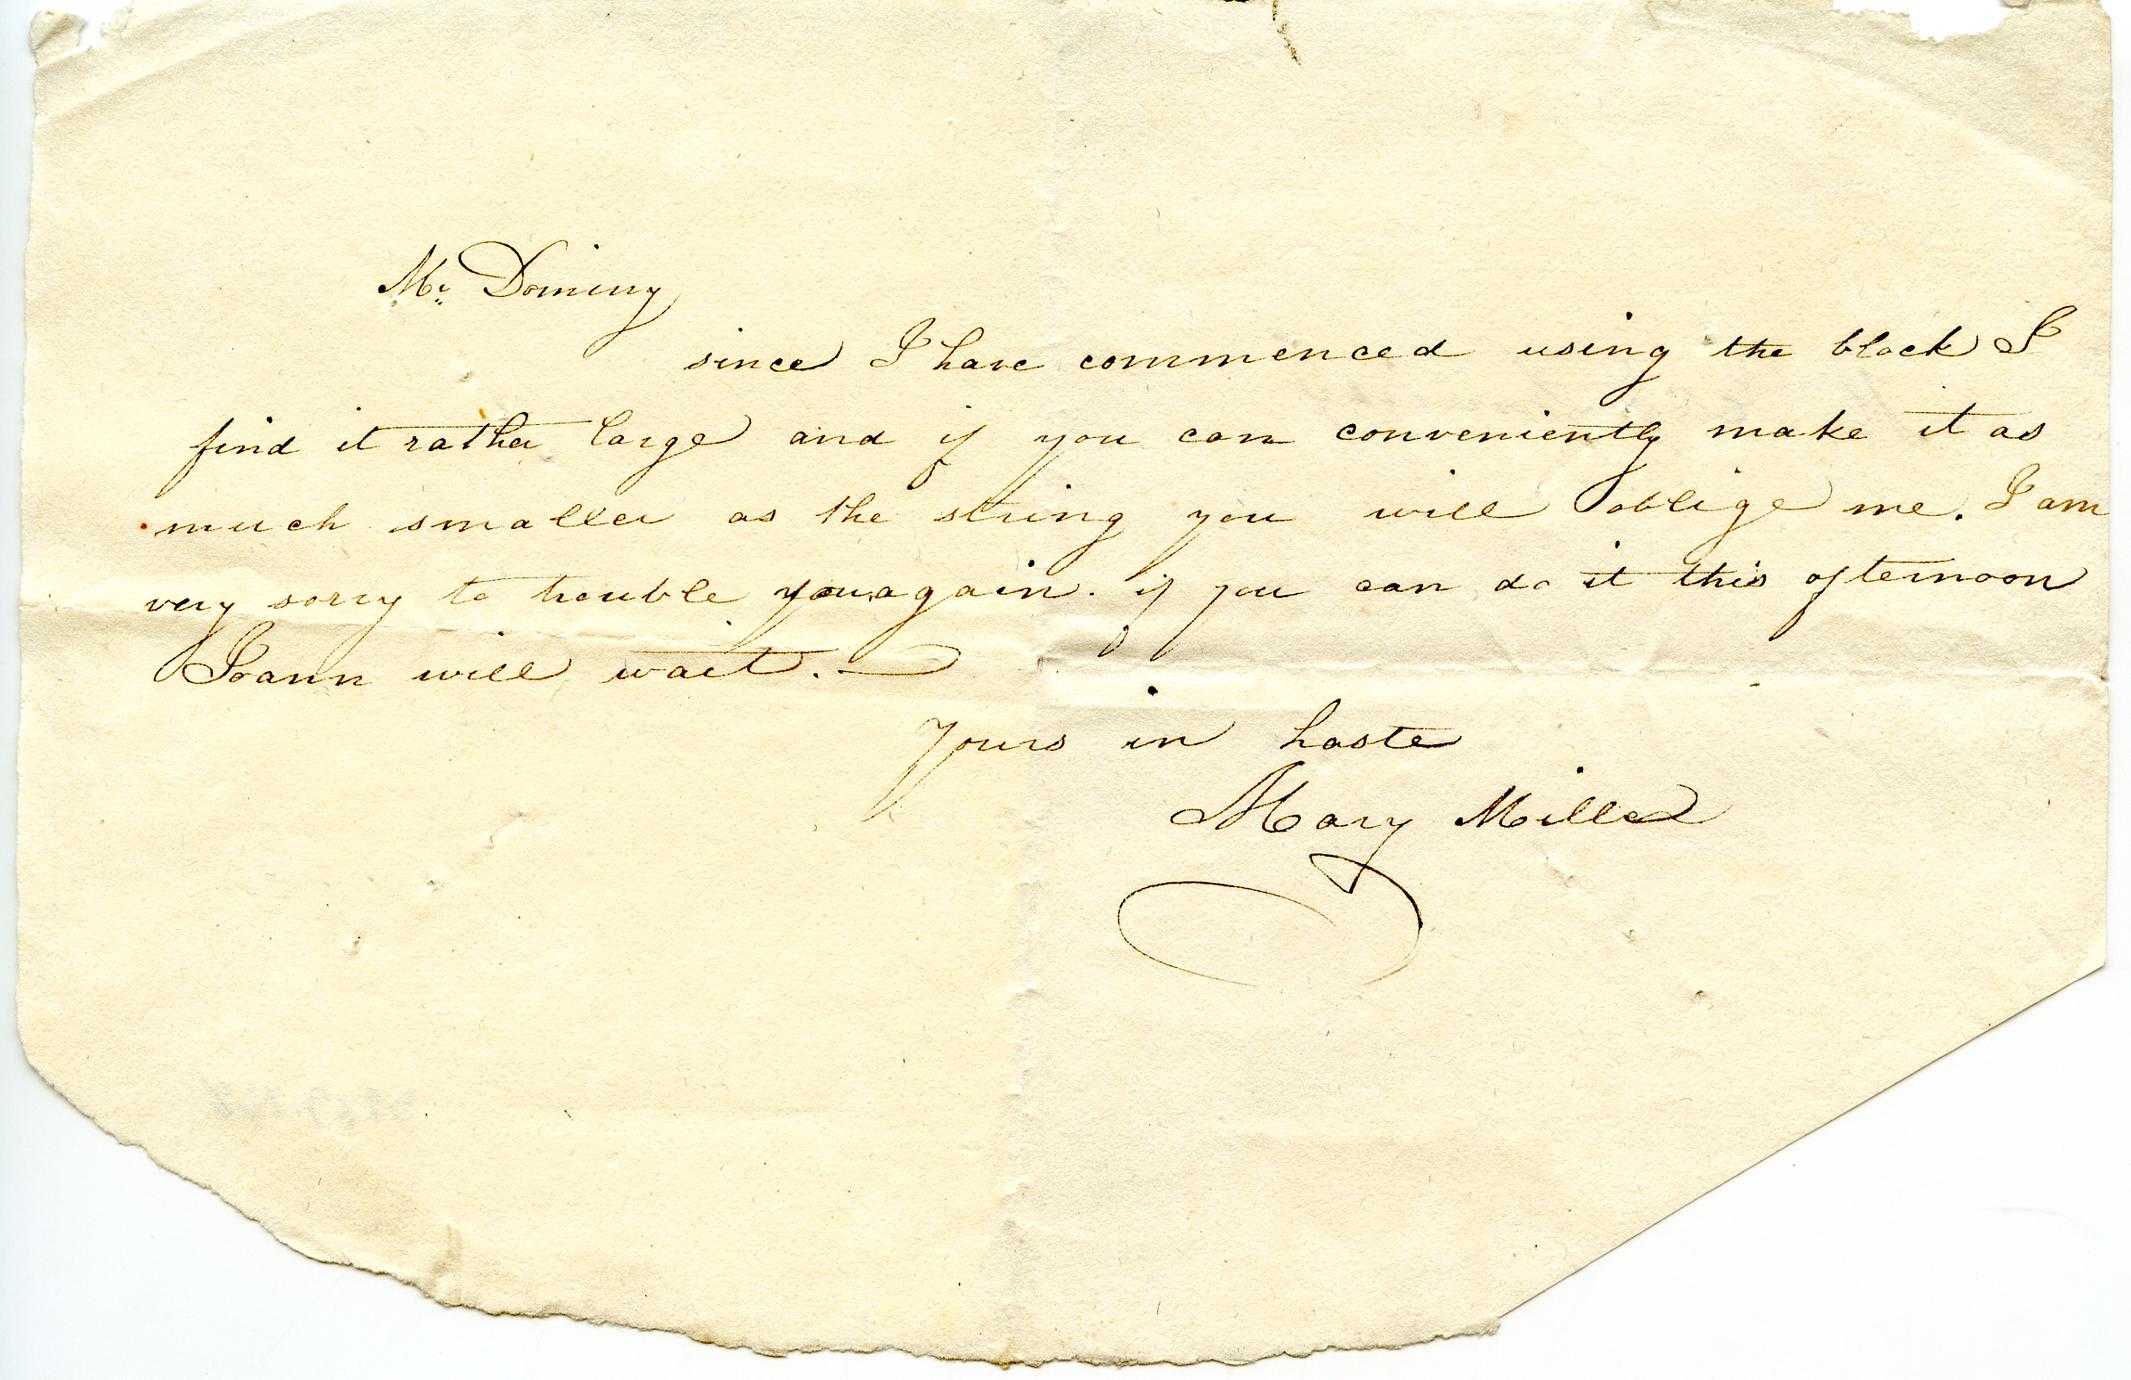 Mr. Dominy
since I have commenced using the block I
find it rather large and if you can conveniently make it as
much smaller as the string you will oblige me. I am
very sorry to trouble you again. if you can do it this afternoon
Joann will wait. —
Yours in haste
Mary Miller